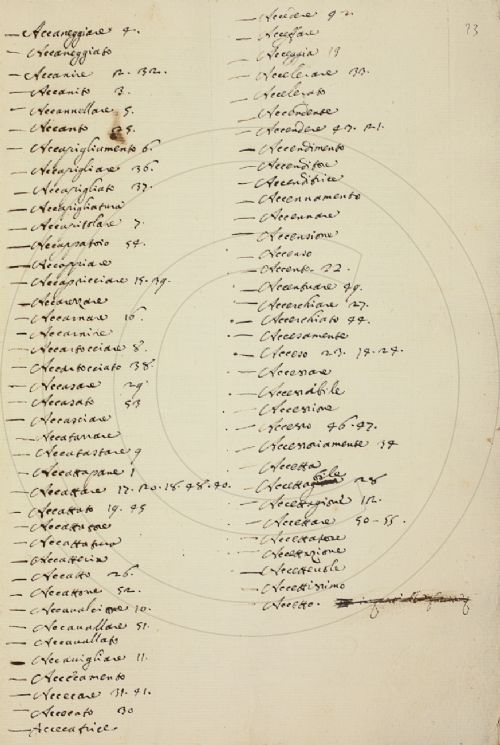 23
— Accaneggiare 4.
— Accaneggiato
— Accanire 2. 32.
— Accanito 3.
— Accannellare 5.
— Accanto 25.
— Accapigliamento 6.
— Accapigliare 36.
— Accapigliato 37.
— Accapigliatura
— Accapitolare 7.
— Accappatoio 54.
— Accappiare
— Accapricciare 15. 39.
— Accarezzare
— Accarnare 16.
— Accarnire
— Accartocciare 8.
— Accartocciato 38.
— Accasare 29.
— Accasato 53
— Accasciare
— Accatarrare
— Accatastare 9
— Accattapane 1
— Accattare 17. 20. 18. 48. 40.
— Accattato 19. 45
— Accattatore
— Accattatura
— Accatteria
— Accatto 26.
— Accattone 52.
— Accavalcione 10.
— Accavallare 51.
— Accavallato
— Accavigliare 11.
— Accecamento
— Accecare 31. 41.
— Accecato 30
— Accecatrice.
— Accedere 42.
— Acceffare
— Acceggia 13
— Accelerare 33.
— Accelerato
— Accendente
— Accendere 47. 21.
— Accendimento
— Accenditore
— Accenditrice
— Accennamento
— Accennare
— Accensione
— Accenso
— Accento. 22.
— Accentuare 49.
— Accerchiare 27.
— Accerchiato 44.
— Accesamente
— Acceso 23. 14. 24.
— Accessare
— Accessibile
— Accessione
— Accesso 46. 47.
— Accessoriamente 34
— Accetta
— Accettabile 28
— Accettagione 12.
— Accettare 50. 55.
— Accettatore
— Accettazione
— Accettevole
— Accettissimo
— Accetto.